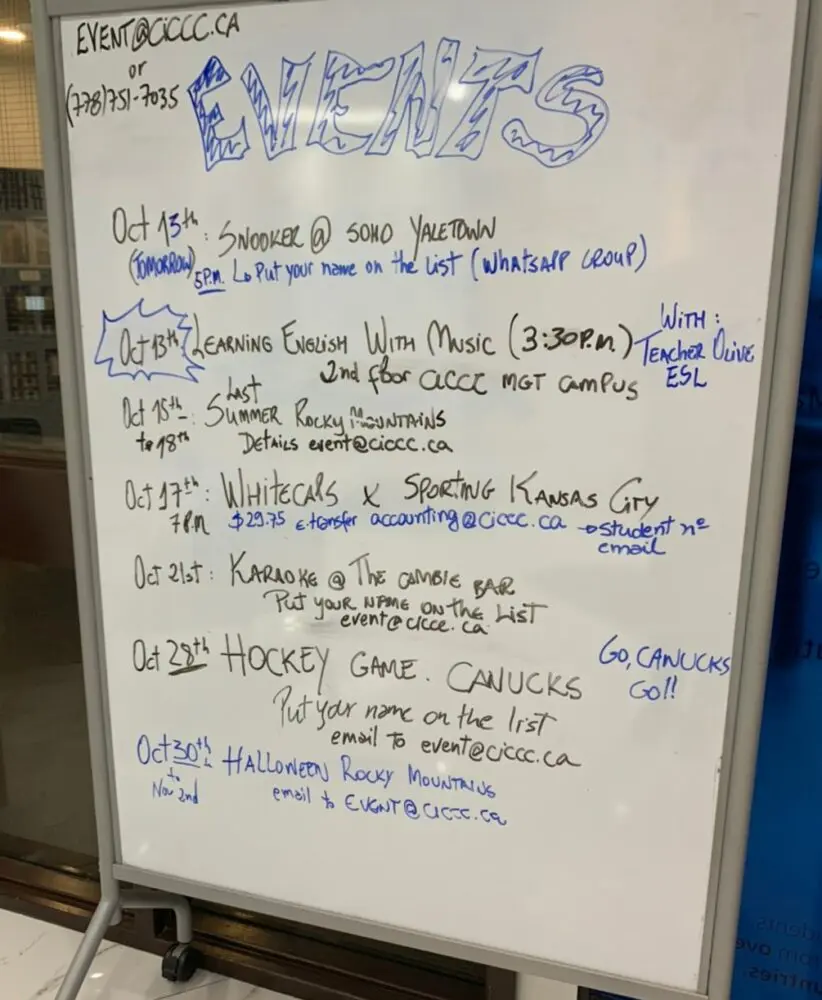 EVENT@CICCC.CA
or
(778)751-7035
EVENTS
Oct 13th: SNOOKER @ SOHO YALETOWN
(TOMORROW) 5P.M. ↳ Put your name on the List (WHATSAPP GROUP)
Oct 13th LEARNING ENGLISH WITH MUSIC (3:30P.M.)
WITH:
TEACHER OLIVE
ESL
2nd floor CICCC MGT CAMPUS
Oct 15th to 18th: Last SUMMER ROCKY MOUNTAINS
DETAILS event@ciccc.ca
Oct 17th: WHITECAPS X SPORTING KANSAS CITY
7P.M $29.75 E.transfer accounting@ciccc.ca → student nº
email
Oct 21st: KARAOKE @ THE CAMBIE BAR
PUT YOUR NAME ON the LIST
event@ciccc.ca
Oct 28th HOCKEY GAME. CANUCKS
GO, CANUCKS
GO!!
Put your name on the list
email to event@ciccc.ca
Oct 30th: HALLOWEEN ROCKY MOUNTAINS
to
Nov 2nd
email to EVENT@CICCC.ca